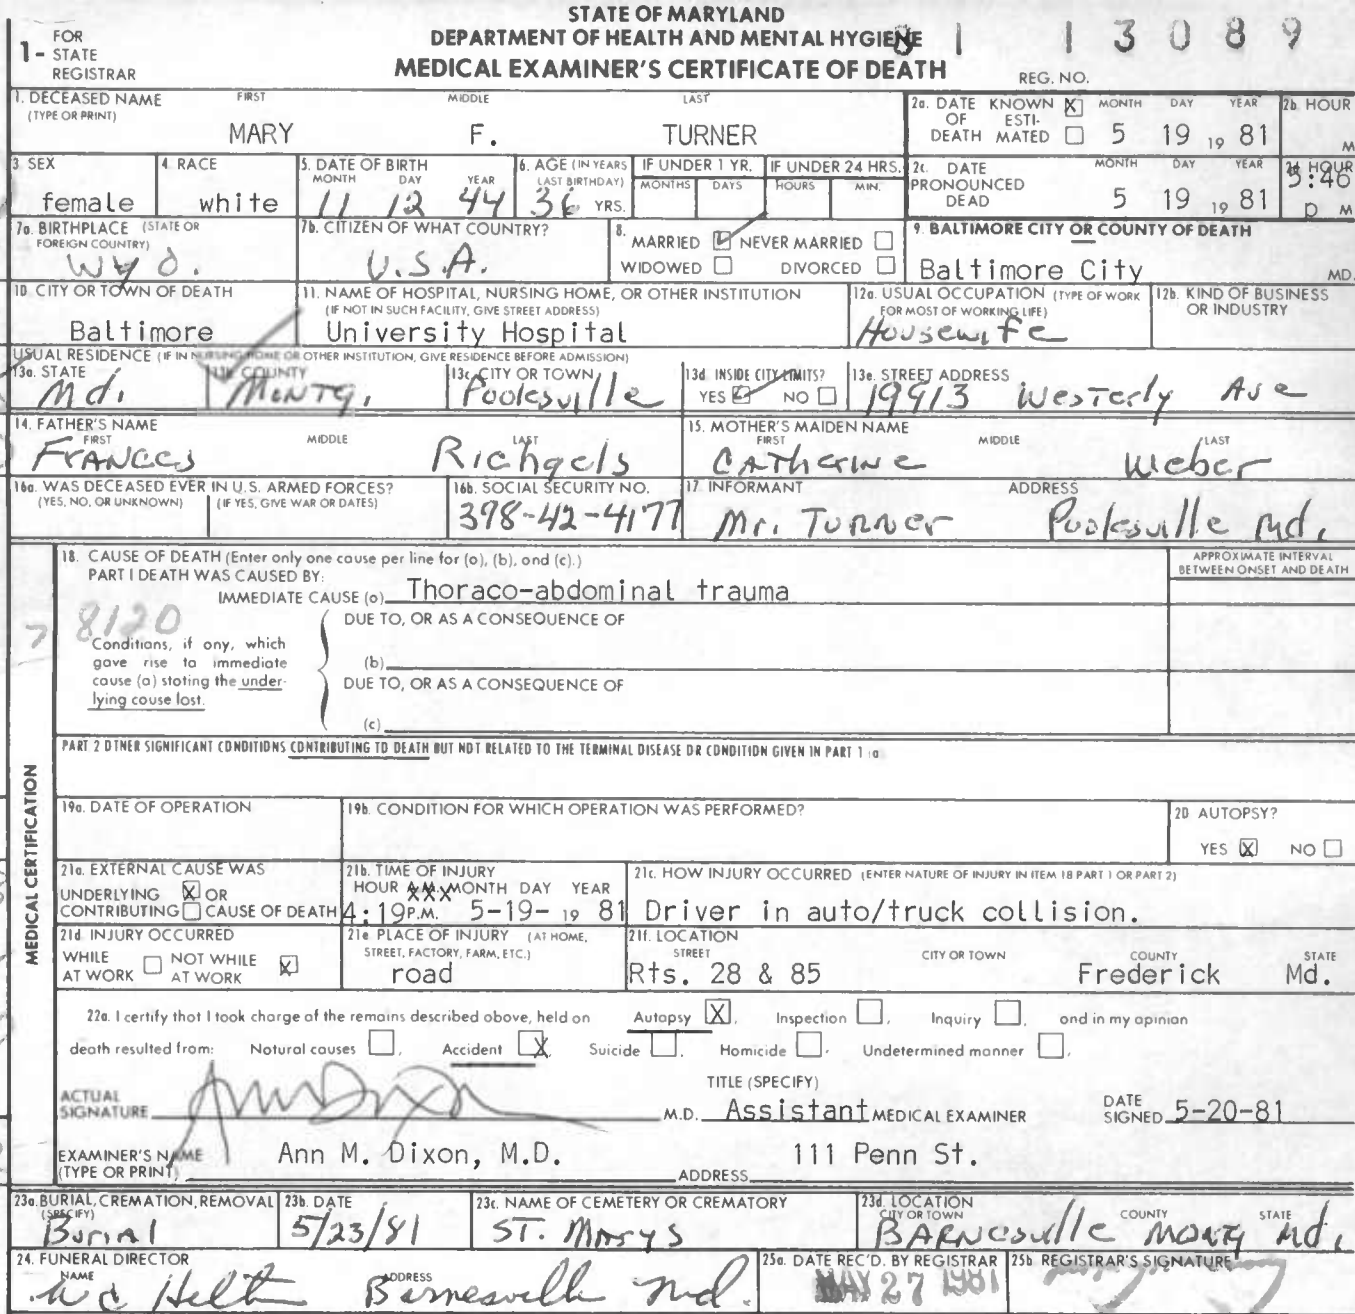 STATE OF MARYLAND
DEPARTMENT OF HEALTH AND MENTAL HYGIENE
MEDICAL EXAMINER'S CERTIFICATE OF DEATH
1 - FOR STATE REGISTRAR
81 13089
REG. NO.
1. DECEASED NAME (TYPE OR PRINT) FIRST MIDDLE LAST
MARY F. TURNER
2a. DATE OF DEATH KNOWN X ESTIMATED MONTH DAY YEAR
5 19 19 81
2b. HOUR M
3. SEX
female
4. RACE
white
5. DATE OF BIRTH MONTH DAY YEAR
11 12 44
6. AGE (IN YEARS LAST BIRTHDAY)
36 YRS.
IF UNDER 1 YR. MONTHS DAYS
IF UNDER 24 HRS. HOURS MIN.
2c. DATE PRONOUNCED DEAD MONTH DAY YEAR
5 19 19 81
2d HOUR
5:46 p M
7a. BIRTHPLACE (STATE OR FOREIGN COUNTRY)
Wyo.
7b. CITIZEN OF WHAT COUNTRY?
U.S.A.
8. MARRIED NEVER MARRIED
WIDOWED DIVORCED
9. BALTIMORE CITY OR COUNTY OF DEATH
Baltimore City MD.
10. CITY OR TOWN OF DEATH
Baltimore
11. NAME OF HOSPITAL, NURSING HOME, OR OTHER INSTITUTION
(IF NOT IN SUCH FACILITY, GIVE STREET ADDRESS)
University Hospital
12a. USUAL OCCUPATION (TYPE OF WORK FOR MOST OF WORKING LIFE)
Housewife
12b. KIND OF BUSINESS OR INDUSTRY
USUAL RESIDENCE (IF IN NURSING HOME OR OTHER INSTITUTION, GIVE RESIDENCE BEFORE ADMISSION)
13a. STATE
Md.
13b. COUNTY
Montg.
13c. CITY OR TOWN
Poolesville
13d. INSIDE CITY LIMITS?
YES NO
13e. STREET ADDRESS
19913 Westerly Ave
14. FATHER'S NAME FIRST MIDDLE LAST
Frances Richgels
15. MOTHER'S MAIDEN NAME FIRST MIDDLE LAST
Catherine Weber
16a. WAS DECEASED EVER IN U.S. ARMED FORCES?
(YES, NO, OR UNKNOWN) (IF YES, GIVE WAR OR DATES)
16b. SOCIAL SECURITY NO.
398-42-4177
17. INFORMANT ADDRESS
Mr. Turner Poolesville Md.
MEDICAL CERTIFICATION
18. CAUSE OF DEATH (Enter only one cause per line for (a), (b), and (c).)
APPROXIMATE INTERVAL BETWEEN ONSET AND DEATH
PART I DEATH WAS CAUSED BY:
IMMEDIATE CAUSE (a) Thoraco-abdominal trauma
8120
DUE TO, OR AS A CONSEQUENCE OF
Conditions, if any, which gave rise to immediate cause (a) stating the underlying cause last.
(b)
DUE TO, OR AS A CONSEQUENCE OF
(c)
PART 2 OTHER SIGNIFICANT CONDITIONS CONTRIBUTING TO DEATH BUT NOT RELATED TO THE TERMINAL DISEASE OR CONDITION GIVEN IN PART 1 (a
19a. DATE OF OPERATION
19b. CONDITION FOR WHICH OPERATION WAS PERFORMED?
20 AUTOPSY?
YES X NO
21a. EXTERNAL CAUSE WAS
UNDERLYING X OR
CONTRIBUTING CAUSE OF DEATH
21b. TIME OF INJURY
HOUR A.M. MONTH DAY YEAR
4:19 P.M. 5-19- 19 81
21c. HOW INJURY OCCURRED (ENTER NATURE OF INJURY IN ITEM 18 PART 1 OR PART 2)
Driver in auto/truck collision.
21d. INJURY OCCURRED
WHILE AT WORK NOT WHILE AT WORK X
21e. PLACE OF INJURY (AT HOME, STREET, FACTORY, FARM, ETC.)
road
21f. LOCATION STREET CITY OR TOWN COUNTY STATE
Rts. 28 & 85 Frederick Md.
22a. I certify that I took charge of the remains described above, held on Autopsy X, Inspection, Inquiry, and in my opinion
death resulted from: Natural causes, Accident X, Suicide, Homicide, Undetermined manner,
ACTUAL SIGNATURE Ann Dixon M.D.
TITLE (SPECIFY)
Assistant MEDICAL EXAMINER
DATE SIGNED 5-20-81
EXAMINER'S NAME (TYPE OR PRINT) Ann M. Dixon, M.D.
ADDRESS 111 Penn St.
23a. BURIAL, CREMATION, REMOVAL (SPECIFY)
Burial
23b. DATE
5/23/81
23c. NAME OF CEMETERY OR CREMATORY
St. Marys
23d. LOCATION CITY OR TOWN COUNTY STATE
Barnesville Montg Md.
24. FUNERAL DIRECTOR NAME ADDRESS
Barnesville Md.
25a. DATE REC'D. BY REGISTRAR
MAY 27 1981
25b. REGISTRAR'S SIGNATURE